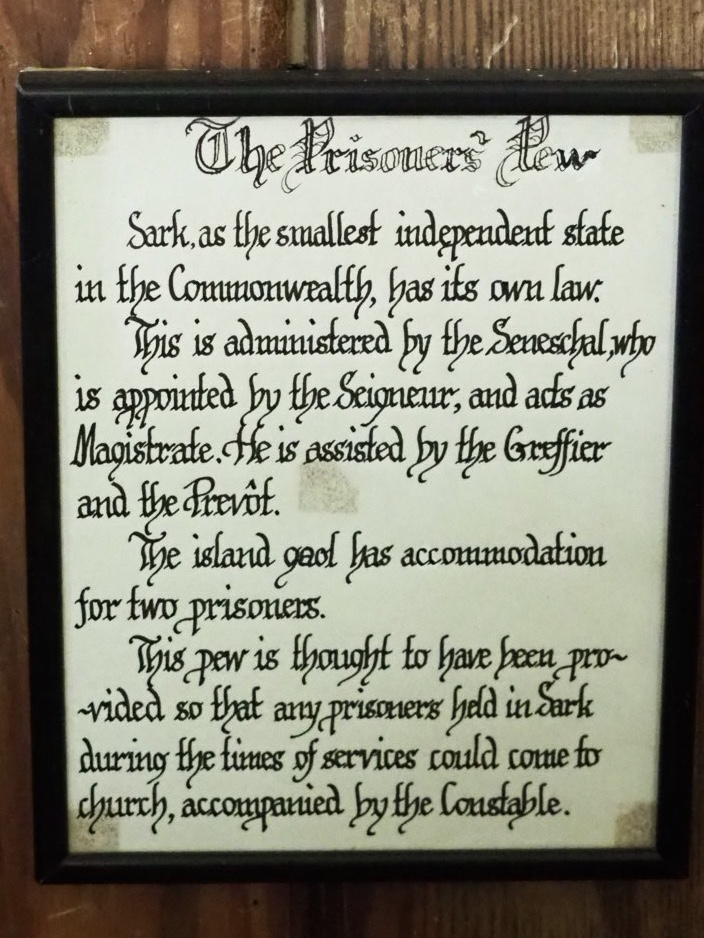 The Prisoners' Pew
Sark, as the smallest independent state
in the Commonwealth, has its own law.
This is administered by the Seneschal, who
is appointed by the Seigneur, and acts as
Magistrate. He is assisted by the Greffier
and the Prevôt.
The island gaol has accommodation
for two prisoners.
This pew is thought to have been pro~
~vided so that any prisoners held in Sark
during the times of services could come to
church, accompanied by the Constable.